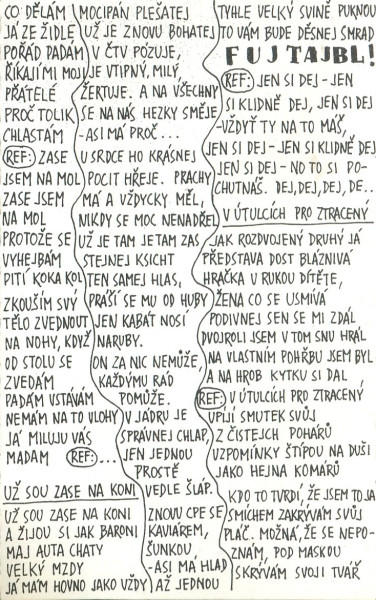 CO DĚLÁM
JÁ ZE ŽIDLE
POŘÁD PADÁM
ŘÍKAJÍ MI MOJI
PŘÁTELÉ
PROČ TOLIK
CHLASTÁM
REF: ZASE
JSEM NA MOL
ZASE JSEM
NA MOL
PROTOŽE SE
VYHEJBÁM
PITÍ KOKA KOL
ZKOUŠÍM SVÝ
TĚLO ZVEDNOUT
NA NOHY, KDYŽ
OD STOLU SE
ZVEDÁM
PADÁM VSTÁVÁM
NEMÁM NA TO VLOHY
JÁ MILUJU VÁS
MADAM REF: ...
UŽ SOU ZASE NA KONI
UŽ SOU ZASE NA KONI
A ŽIJOU SI JAK BARONI
MAJ AUTA CHATY
VELKÝ MZDY
JÁ MÁM HOVNO JAKO VŽDY
MOCIPÁN PLEŠATEJ
UŽ JE ZNOVU BOHATEJ
V ČTV PÓZUJE,
JE VTIPNÝ, MILÝ,
ŽERTUJE. A NA VŠECHNY
SE NA NÁS HEZKY SMĚJE
-ASI MÁ PROČ...
U SRDCE HO KRÁSNEJ
POCIT HŘEJE. PRACHY
MÁ A VŽDYCKY MĚL,
NIKDY SE MOC NENADŘEL
UŽ JE TAM JE TAM ZAS
STEJNEJ KSICHT
TEN SAMEJ HLAS,
PRÁŠÍ SE MU OD HUBY
JEN KABÁT NOSÍ
NARUBY.
ON ZA NIC NEMŮŽE,
KAŽDÝMU RÁD
POMŮŽE.
V JÁDRU JE
SPRÁVNEJ CHLAP,
JEN JEDNOU
PROSTĚ
VEDLE ŠLÁP.
ZNOVU CPE SE
KAVIÁREM,
ŠUNKOU
-ASI MÁ HLAD
AŽ JEDNOU
TYHLE VELKÝ SVINĚ PUKNOU
TO VÁM BUDE DĚSNEJ SMRAD
FUJTAJBL!
REF: JEN SI DEJ - JEN
SI KLIDNĚ DEJ, JEN SI DEJ
-VŽDYŤ TY NA TO MÁŠ,
JEN SI DEJ - JEN SI KLIDNĚ DEJ
JEN SI DEJ - NO TO SI PO-
CHUTNÁŠ. DEJ, DEJ, DEJ, DE..
V ÚTULCÍCH PRO ZTRACENÝ
JAK ROZDVOJENÝ DRUHÝ JÁ
PŘEDSTAVA DOST BLÁZNIVÁ
HRAČKA V RUKOU DÍTĚTE,
ŽENA CO SE USMÍVÁ
PODIVNEJ SEN SE MI ZDÁL
DVOJROLI JSEM V TOM SNU HRÁL
NA VLASTNÍM POHŘBU JSEM BYL
A NA HROB KYTKU SI DAL
REF: V ÚTULCÍCH PRO ZTRACENÝ
UPIJ SMUTEK SVŮJ
Z ČISTEJCH POHÁRŮ
VZPOMÍNKY ŠTÍPOU NA DUŠI
JAKO HEJNA KOMÁRŮ
KDO TO TVRDÍ, ŽE JSEM TO JÁ
SMÍCHEM ZAKRÝVÁM SVŮJ
PLÁČ. MOŽNÁ, ŽE SE NEPO-
ZNÁM, POD MASKOU
SKRÝVÁM SVOJI TVÁŘ